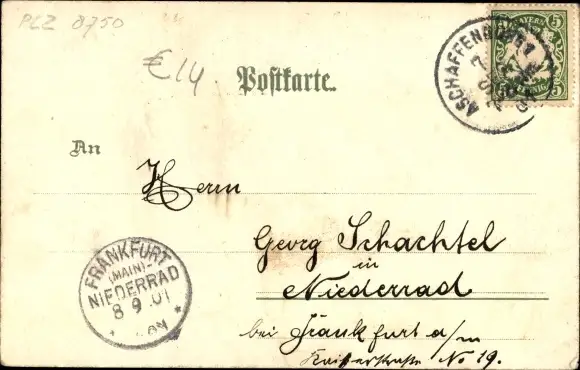 PLZ 8750
€14
Postkarte.
BAYERN
5 5
ASCHAFFENBURG 1
An
Herrn
Georg Schachtel
in
Niederrad
bei Frankfurt a/m
Kaiserstraße No 19.
FRANKFURT
(MAIN)-
NIEDERRAD
8 9 01